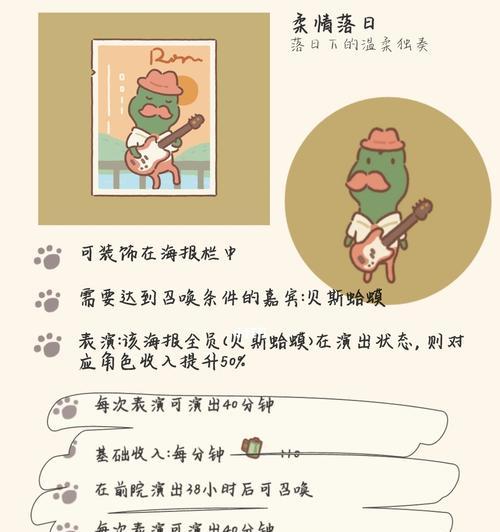 柔情落日
落日下的温柔独奏
Ron
可装饰在海报栏中
需要达到召唤条件的嘉宾:贝斯蛤蟆
表演:该海报全员(贝斯蛤蟆)在演出状态,则对
应角色收入提升50%
每次表演可演出40分钟
基础收入:每分钟
在前院演出38小时后可召唤
每次表演可演出40分钟